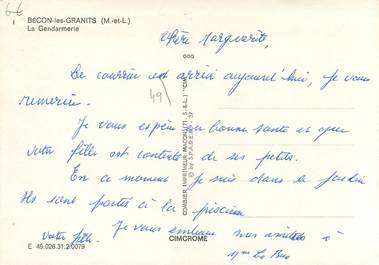 66
BECON-les-GRANITS (M.-et-L.)
La Gendarmerie
Chère Marguerite,
Le courrier est arrivé aujourd'hui, je vous
remercie. 49
Je vous espère en bonne santé et que
votre fille est contente de ses petits.
En ce moment je suis dans le jardin
Ils sont partis à la piscine
Je vous embrasse mes amitiés à
votre fille.
Mme Le Bras
COMBIER IMPRIMEUR MACON (71. S.-&-L.) "CIM"
© by S.P.A.D.E.M.
CIMCROME
E 49.026.31.2.0079